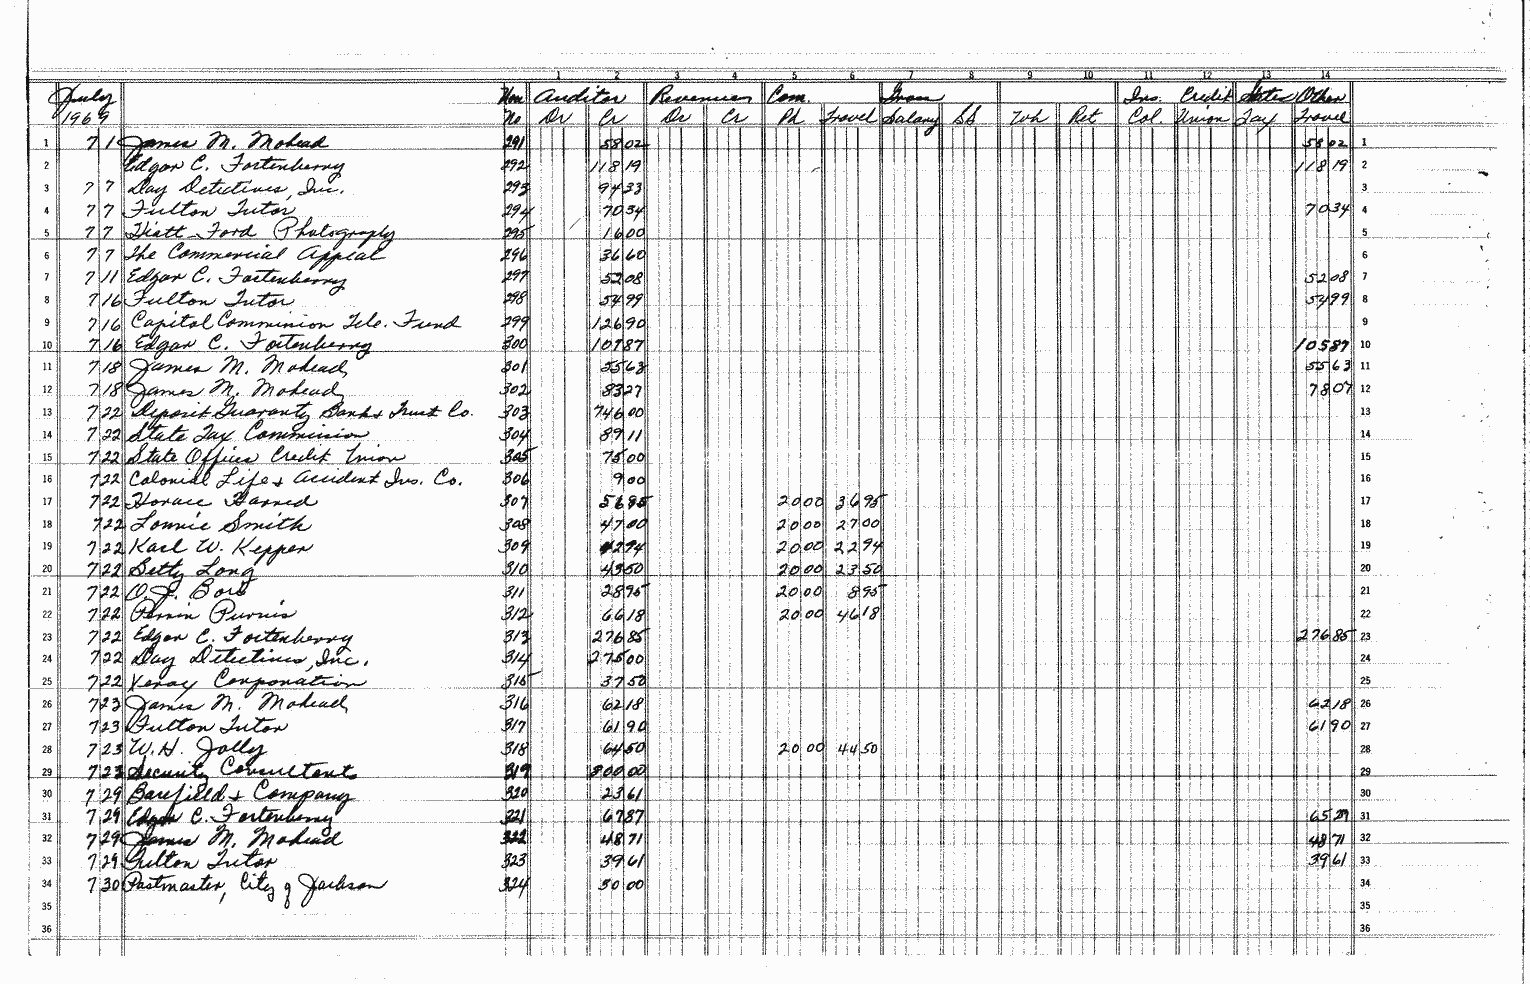 1 2 3 4 5 6 7 8 9 10 11 12 13 14
July Auditor Revenues Com. Gross Ins. Credit States Other
1969 No Dr Cr Dr Cr Pd Travel Salary SS Wh Ret Col. Union Tax Travel
1 7 1 James M. Mohead 291 58 02 58 02 1
2 Edgar C. Fortenberry 292 118 19 118 19 2
3 7 7 Day Detectives, Inc. 293 94 33 3
4 7 7 Fulton Tutor 294 70 34 70 34 4
5 7 7 Hiatt-Ford Photography 295 16 00 5
6 7 7 The Commercial Appeal 296 36 60 6
7 7 11 Edgar C. Fortenberry 297 52 08 52 08 7
8 7 16 Fulton Tutor 298 54 99 54 99 8
9 7 16 Capitol Commission Tele. Fund 299 126 90 9
10 7 16 Edgar C. Fortenberry 300 107 87 105 87 10
11 7 18 James M. Mohead 301 55 63 55 63 11
12 7 18 James M. Mohead 302 83 27 78 07 12
13 7 22 Deposit Guaranty Bank & Trust Co. 303 746 00 13
14 7 22 State Tax Commission 304 89 11 14
15 7 22 State Offices Credit Union 305 75 00 15
16 7 22 Colonial Life & Accident Ins. Co. 306 9 00 16
17 7 22 Horace Harned 307 56 95 20 00 36 95 17
18 7 22 Lonnie Smith 308 47 00 20 00 27 00 18
19 7 22 Karl W. Kepper 309 42 94 20 00 22 94 19
20 7 22 Betty Long 310 43 50 20 00 23 50 20
21 7 22 311 28 95 20 00 8 95 21
22 7 22 Perrin Purvis 312 66 18 20 00 46 18 22
23 7 22 Edgar C. Fortenberry 313 276 85 276 85 23
24 7 22 Day Detectives, Inc. 314 275 00 24
25 7 22 Xerox Corporation 315 37 50 25
26 7 23 James M. Mohead 316 62 18 62 18 26
27 7 23 Fulton Tutor 317 61 90 61 90 27
28 7 23 W. H. Jolly 318 64 50 20 00 44 50 28
29 7 23 Security Consultants 319 800 00 29
30 7 29 Barefield & Company 320 23 61 30
31 7 29 Edgar C. Fortenberry 321 67 87 31
32 7 29 James M. Mohead 322 48 71 48 71 32
33 7 29 Fulton Tutor 323 39 61 39 61 33
34 7 30 Postmaster, City of Jackson 324 50 00 34
35 35
36 36